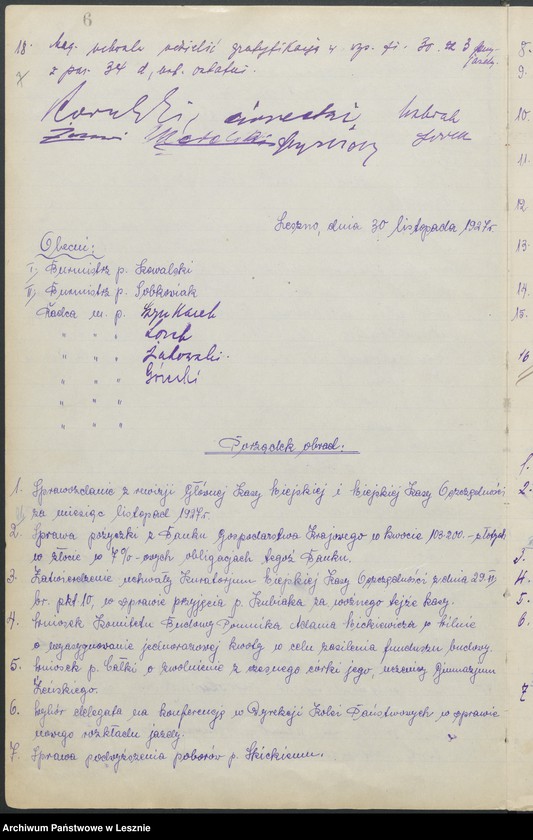 6
18. Mag. uchwala udzielić gratyfikację w wys. zł. 30. za 3
z par. 34 d,
Leszno, dnia 30 listopada 1927r.
Obecni:
I) Burmistrz p. Kowalski
II) Burmistrz p. Sobkowiak
Radca m. p. Szyszkarek
" " " Lorek
" " " Żakowski.
" " " Górecki
" " "
" " "
Porządek obrad:
1. Sprawozdanie z rewizji Głównej Kasy Miejskiej i Miejskiej Kasy Oszczędności
za miesiąc listopad 1927r.
2. Sprawa pożyczki z Banku Gospodarstwa Krajowego w kwocie 103.200.- złotych
w złocie w 7%-owych obligacjach tegoż Banku.
3. Zatwierdzenie uchwały Kuratorjum Miejskiej Kasy Oszczędności z dnia 29.II
br. pkt 10, w sprawie przyjęcia p. Kubiaka za woźnego tejże kasy.
4. Wniosek Komitetu Budowy Pomnika Adama Mickiewicza w Wilnie
o wyasygnowanie jednorazowej kwoty w celu zasilenia funduszu budowy.
5. Wniosek p. Całki o zwolnienie z czesnego córki jego, uczenicy Gimnazjum
Żeńskiego.
6. Wybór delegata na konferencję w Dyrekcji Kolei Państwowych w sprawie
nowego rozkładu jazdy.
7. Sprawa podwyższenia poborów p. Skickiemu.
8.
9.
10.
11.
12
13.
14.
15.
16
1.
2.
3.
4.
5.
6.
7
Archiwum Państwowe w Lesznie